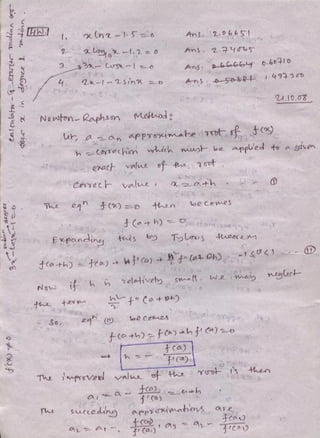 HW 1. x ln x - 1.5 = 0 Ans. 2.06651
2. x log₁₀ x - 1.2 = 0 Ans. 2.74065
3. 3x - cos x - 1 = 0 Ans: 0.60710
4. 2x - 1 - 2 sin x = 0 Ans. 1.497300
21.10.08
Newton-Raphson Method:
Let, a = an approximate root of f(x)
h = correction which must be applied to a given
exact value of the root
Correct value, x = a+h ①
The eqⁿ f(x)=0 then becomes
f(a+h) = 0
Expanding this by Taylors theorem
Now if h is relatively small we may neglect
the term h²/2 f"(a+θh)
So, eqⁿ ⑪ becomes
f(a+h) = f(a) + h f'(a) = 0
→ h = - f(a)/f'(a)
The improved value of the root is then
a₁ = a - f(a)/f'(a) = a+h
The succeding approximations are
a₂ = a₁ - f(a₁)/f'(a₁), a₃ = a₂ - f(a₂)/f'(a₂)
3x - cosx - 1 = 0
f'(x) ≠ 0